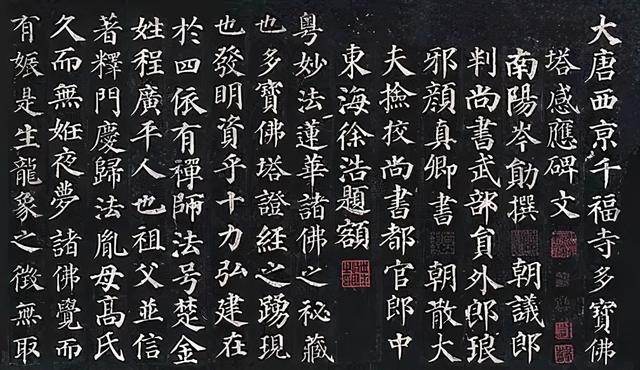 大唐西亰千福寺多寶佛
塔感應碑文
南陽岑勛撰 朝議郎
判尚書武部貟外郎琅
邪顏真卿書 朝散大
夫撿挍尚書都官郎中
東海徐浩題額
粵妙法蓮華諸佛之祕藏
也多寶佛塔證經之踴現
也發明資乎十力弘建在
於四依有禪師法号楚金
姓程廣平人也祖父並信
著釋門慶歸法胤母高氏
久而無姙夜夢諸佛覺而
有娠是生龍象之徵無取